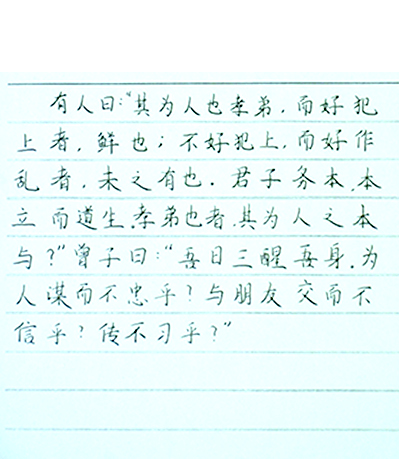 有人曰：“其为人也孝弟，而好犯
上者，鲜也；不好犯上，而好作
乱者，未之有也．君子务本，本
立而道生，孝弟也者，其为人之本
与？”曾子曰：“吾日三醒吾身，为
人谋而不忠乎？与朋友交而不
信乎？传不习乎？”